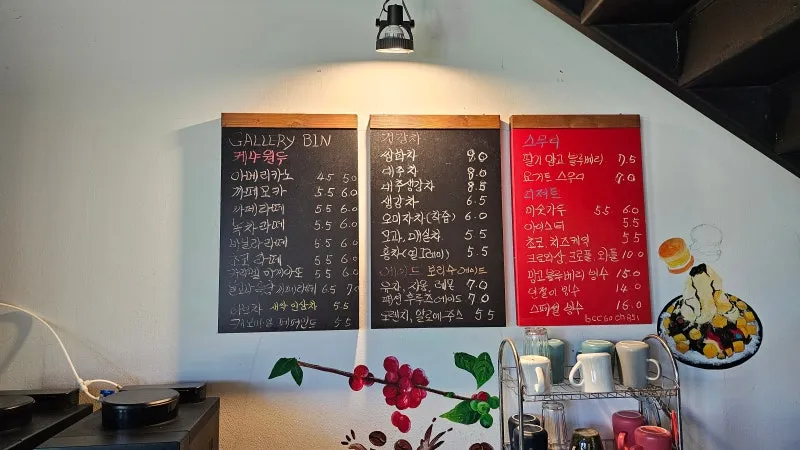 GALLERY BIN
아메리카노 4.5 5.0
까페모카 5.5 6.0
까페라떼 5.5 6.0
녹차라떼 5.5 6.0
바닐라라떼 5.5 6.0
초코라떼 5.5 6.0
5.5 6.0
6.5 7.0
5.5
5.5
건강차
쌍화차 9.0
대추차 8.0
대추생강차 8.5
생강차 6.5
오미자차(직즙) 6.0
모과, 매실차 5.5
홍차(얼그레이) 5.5
에이드
유자, 자몽, 레몬 7.0
패션후루츠에이드 7.0
오렌지, 알로에쥬스 5.5
스무디
딸기 망고 블루베리 7.5
요거트 스무디 7.0
디져트
미숫가루 5.5 6.0
아이스티 5.5
초코 치즈케익 5.5
크로와상 크로플 와플 10.0
망고블루베리 빙수 15.0
인절미 빙수 14.0
스페셜 빙수 16.0